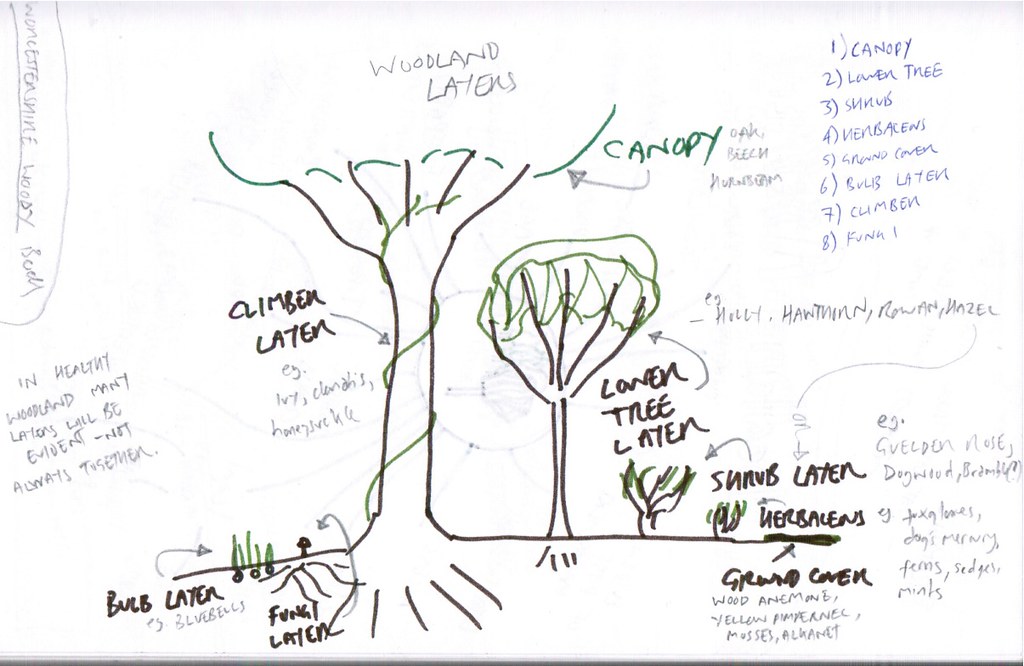 WOODLAND
LAYERS
1) CANOPY
2) LOWER TREE
3) SHRUB
4) HERBACENS
5) GROUND COVER
6) BULB LAYER
7) CLIMBER
8) FUNGI
CANOPY
OAK,
BEECH
HORNBEAM
CLIMBER
LAYER
eg.
Ivy, clematis,
honeysuckle
eg
HOLLY, HAWTHORN, ROWAN, HAZEL
LOWER
TREE
LAYER
IN HEALTHY
WOODLAND MANY
LAYERS WILL BE
EVIDENT - NOT
ALWAYS TOGETHER.
OR
SHRUB LAYER
eg.
GUELDER ROSE,
Dogwood, Bramble(?)
HERBACENS
eg foxgloves,
dog's mercury,
ferns, sedges,
mints
GROUND COVER
WOOD ANEMONE,
YELLOW PIMPERNEL,
MOSSES, ALKANET
BULB LAYER
eg. BLUEBELLS
FUNGI
LAYER
WORCESTERSHIRE WOODY